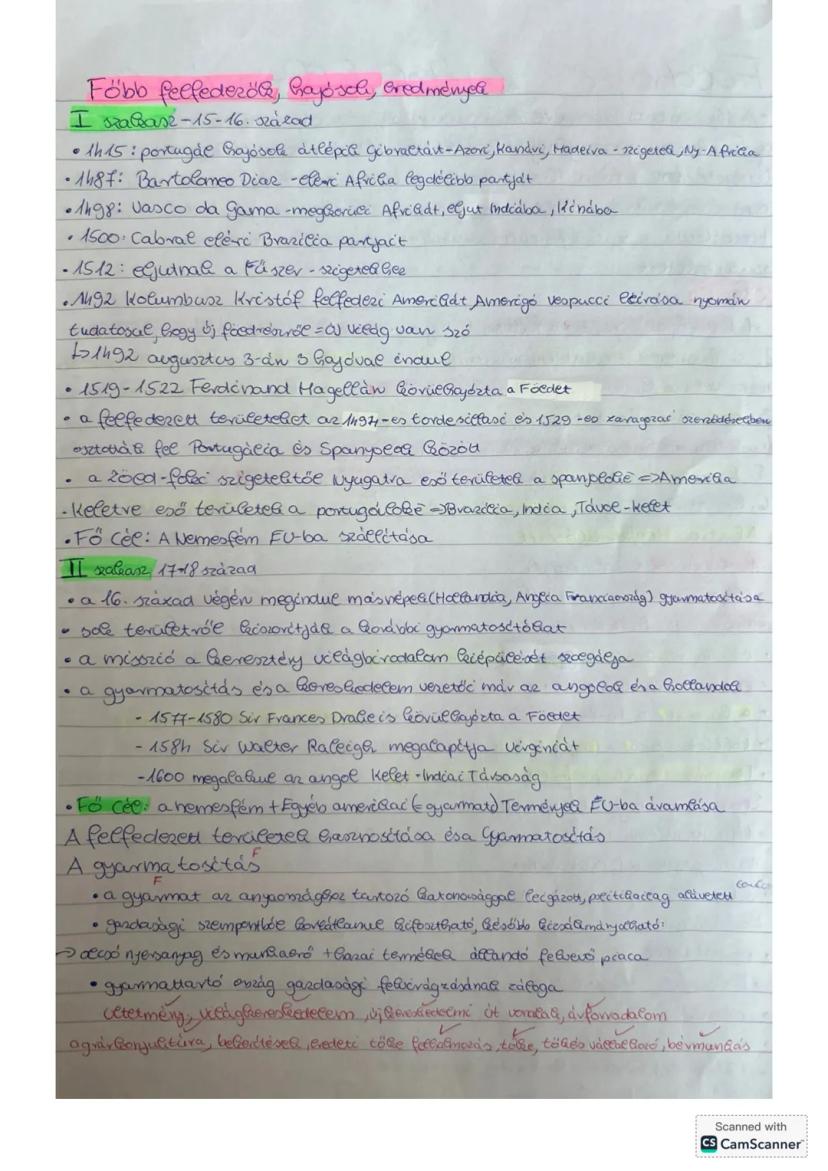 Főbb felfedezők, hajósok, eredmények
I szakasz - 15-16. század
• 1415: portugál hajósok átlépik Gibraltárt - Azori, Kanári, Madeira - szigetek, Ny-Afrika
• 1487: Bartolomeo Diaz - eléri Afrika legdélibb partját
• 1498: Vasco da Gama - megkerüli Afrikát, eljut Indiába, Kínába
• 1500: Cabral eléri Brazília partjait
• 1512: eljutnak a Fűszer - szigetekhez
• 1492 Kolumbusz Kristóf felfedezi Amerikát Amerigó vespucci leírása nyomán
tudatosul, hogy új földrészről = új világ van szó
↳ 1492 augusztus 3-án 3 hajóval indul
• 1519-1522 Ferdinánd Magellán körülhajózta a Földet
• a felfedezett területeket az 1494-es tordesillasi és 1529-es zaragozai szerződésekben
osztották fel Portugália és Spanyolo. között
• a Zöld-foki szigetektől Nyugatra eső területek a spanyoloké => Amerika
• Keletre eső területek a portugáloké => Brazília, India, Távol-kelet
• Fő Cél: A Nemesfém EU-ba szállítása
II szakasz 17-18 század
• a 16. század végén megindul más népek (Hollandia, Anglia Franciaország) gyarmatosítása
• sok területről kiszorítják a korábbi gyarmatosítókat
• a misszió a keresztény világbirodalom kiépülését szolgálja
• a gyarmatosítás és a kereskedelem vezetői már az angolok és a hollandok
- 1577-1580 Sir Frances Drake is körülhajózta a Földet
- 1584 Sir Walter Raleigh megalapítja virginiát
- 1600 megalakul az angol Kelet-Indiai Társaság
• Fő Cél: a nemesfém + Egyéb amerikai (gyarmat) Termények EU-ba áramlása
A felfedezett területek hasznosítása és a Gyarmatosítás
A gyarmatosítás F
F
• a gyarmat az anyaországhoz tartozó katonasággal leigázott, politikailag alávetett
• gazdasági szempontból korlátlanul kifosztható, később kizsákmányolható:
→ olcsó nyersanyag és munkaerő + hazai termékek állandó felvevő piaca
• gyarmattartó ország gazdasági felvirágzásának záloga
Véletermény, világkereskedelem, új kereskedelmi út vonalak, árforradalom
agrárkonjuktúra, bekerítések, eredeti tőke felhalmozás, tőke, tőkés vállalkozó, bérmunkás
Scanned with
CS CamScanner